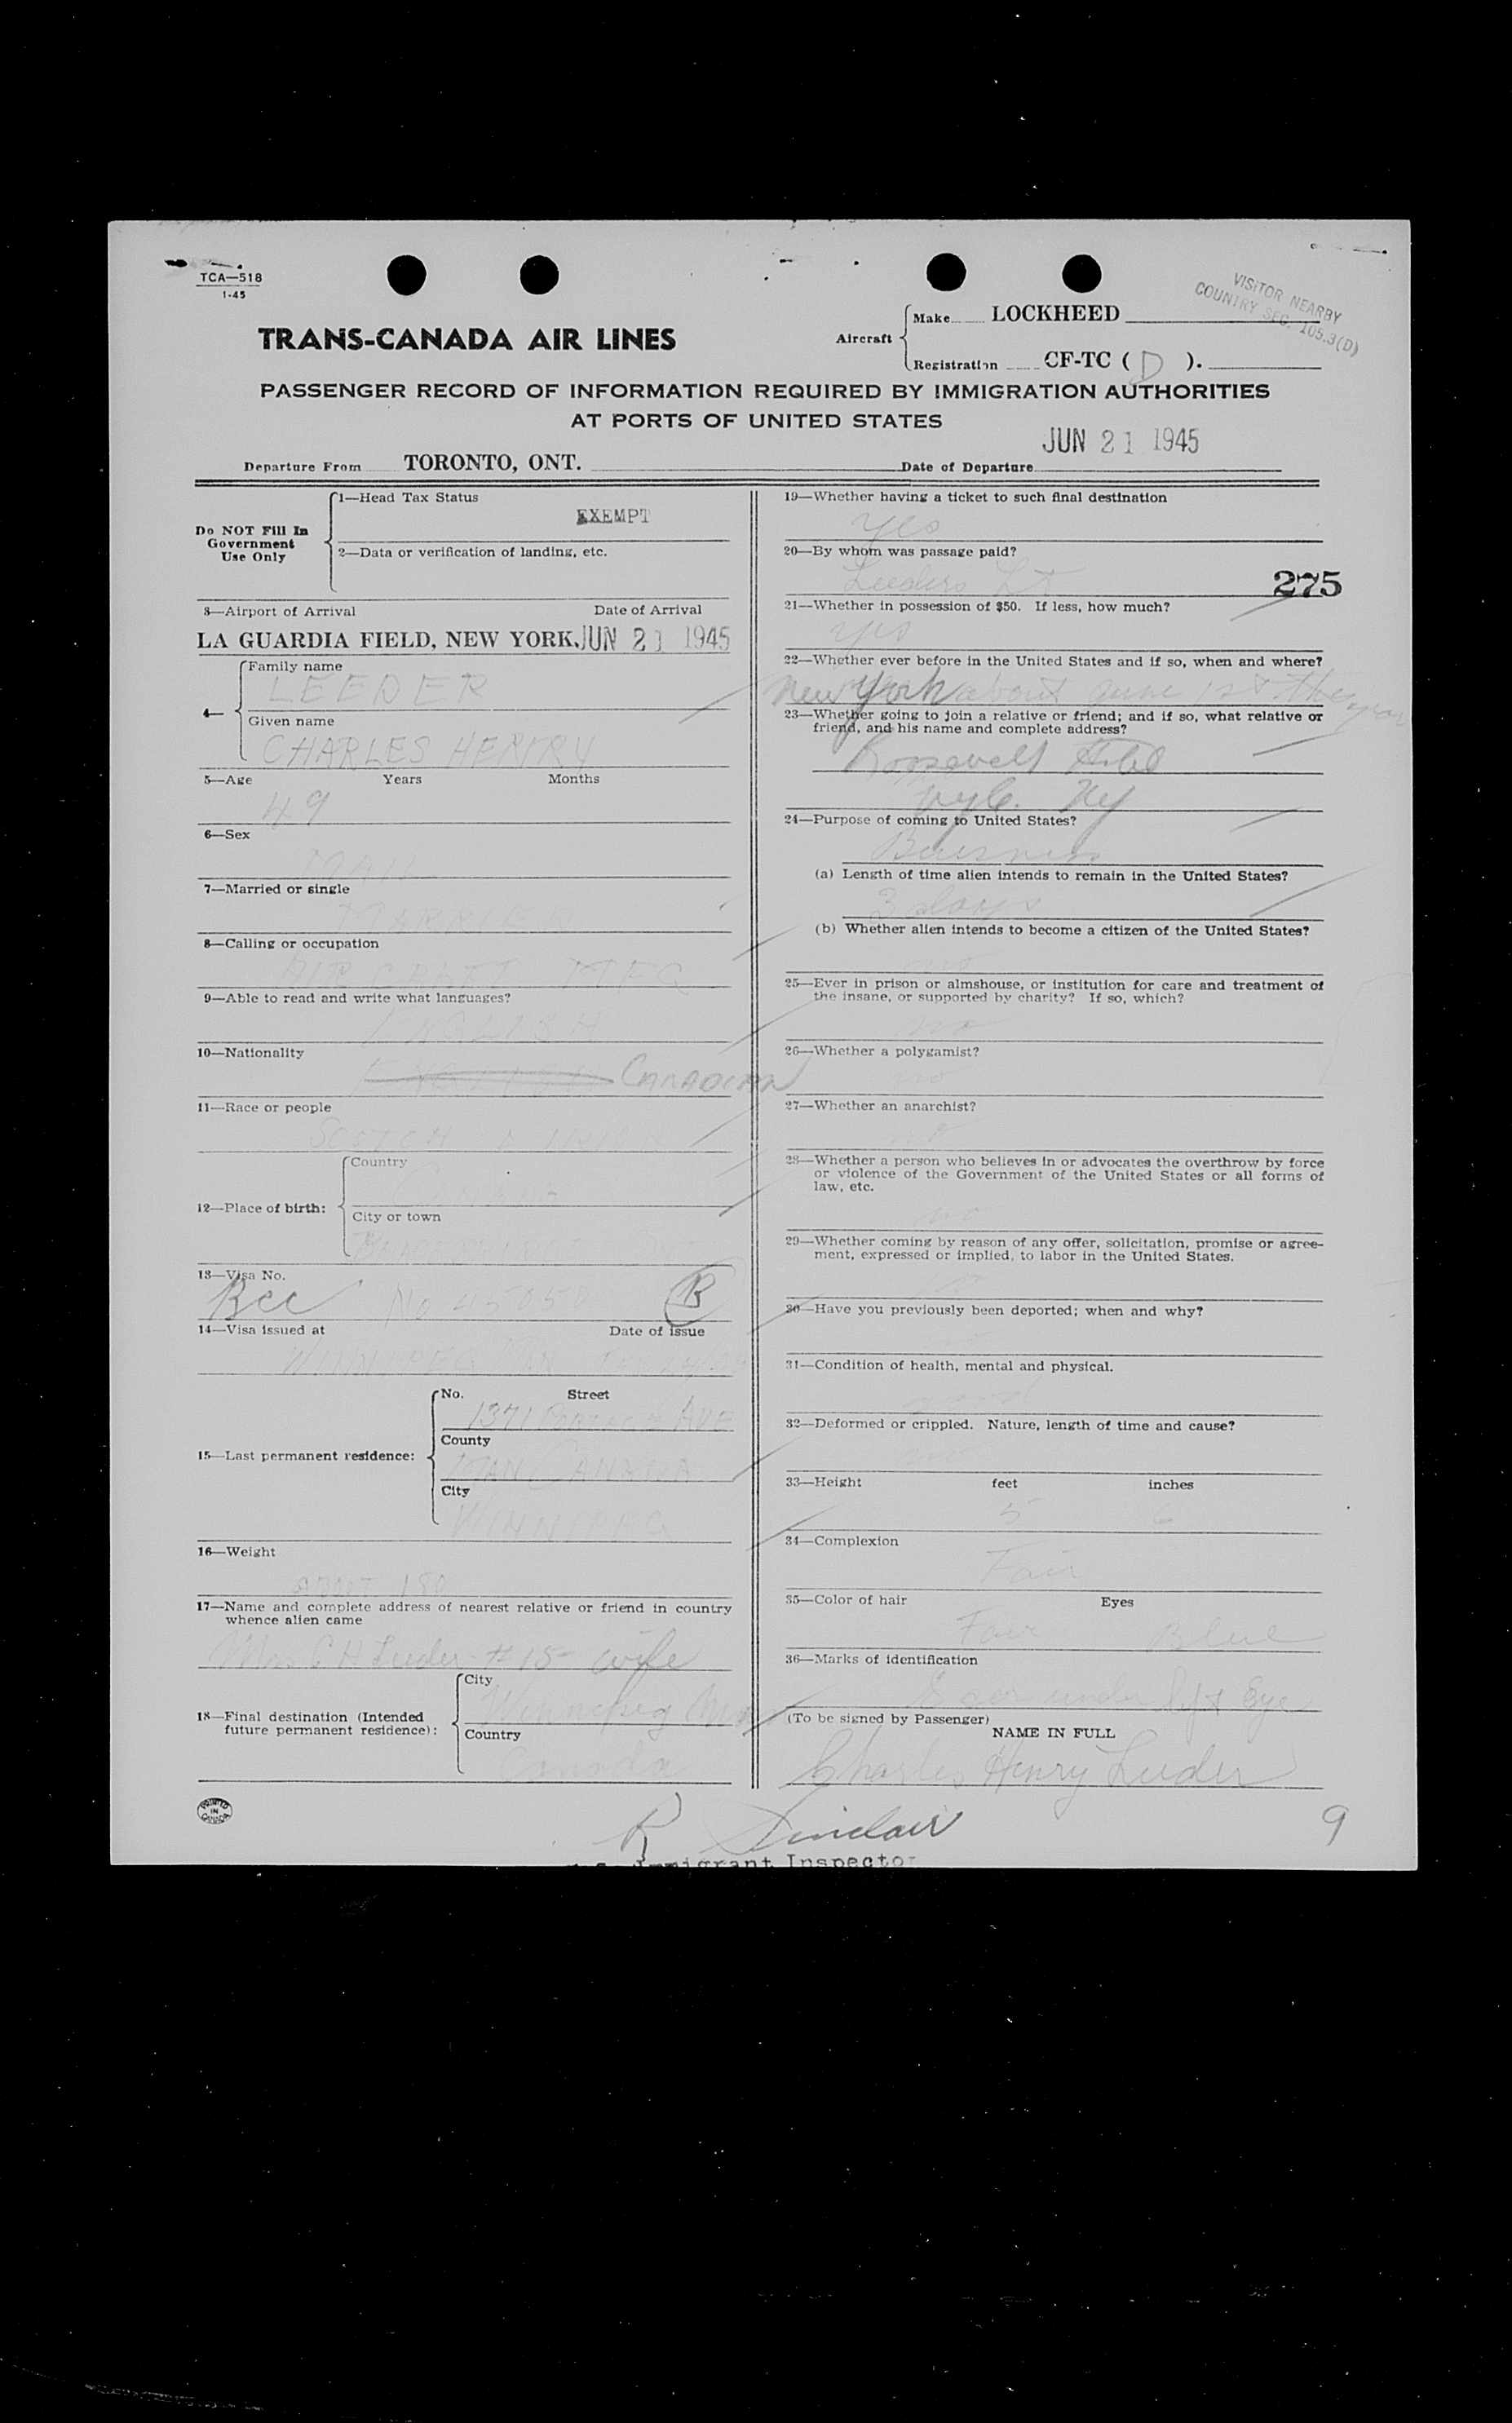 TCA—518
1-45
VISITOR NEARBY
COUNTRY SEC. 105.3(D)
TRANS-CANADA AIR LINES
Aircraft
Make LOCKHEED
Registration CF-TC ( D ).
PASSENGER RECORD OF INFORMATION REQUIRED BY IMMIGRATION AUTHORITIES
AT PORTS OF UNITED STATES
JUN 21 1945
Departure From TORONTO, ONT. Date of Departure
Do NOT Fill In
Government
Use Only
1—Head Tax Status
EXEMPT
2—Data or verification of landing, etc.
3—Airport of Arrival Date of Arrival
LA GUARDIA FIELD, NEW YORK. JUN 21 1945
4—
Family name
LEEDER
Given name
CHARLES HENRY
5—Age Years Months
49
6—Sex
7—Married or single
MARRIED
8—Calling or occupation
AIRCRAFT MFG
9—Able to read and write what languages?
ENGLISH
10—Nationality
CANADIAN
11—Race or people
SCOTCH
12—Place of birth:
Country
City or town
13—Visa No.
BCC No B
14—Visa issued at Date of issue
WINNIPEG
15—Last permanent residence:
No. Street
1371 PORTAGE AVE
County
MAN CANADA
City
WINNIPEG
16—Weight
ABOUT 180
17—Name and complete address of nearest relative or friend in country
whence alien came
Mrs C H Leeder #15 - wife
18—Final destination (Intended
future permanent residence):
City
Winnipeg Man
Country
Canada
19—Whether having a ticket to such final destination
yes
20—By whom was passage paid?
Leeders Lt
275
21—Whether in possession of $50. If less, how much?
yes
22—Whether ever before in the United States and if so, when and where?
New York about June 1st this year
23—Whether going to join a relative or friend; and if so, what relative or
friend, and his name and complete address?
Roosevelt Hotel
NYC. NY
24—Purpose of coming to United States?
Business
(a) Length of time alien intends to remain in the United States?
3 days
(b) Whether alien intends to become a citizen of the United States?
no
25—Ever in prison or almshouse, or institution for care and treatment of
the insane, or supported by charity? If so, which?
no
26—Whether a polygamist?
no
27—Whether an anarchist?
no
28—Whether a person who believes in or advocates the overthrow by force
or violence of the Government of the United States or all forms of
law, etc.
no
29—Whether coming by reason of any offer, solicitation, promise or agree-
ment, expressed or implied, to labor in the United States.
30—Have you previously been deported; when and why?
31—Condition of health, mental and physical.
good
32—Deformed or crippled. Nature, length of time and cause?
33—Height feet inches
5
34—Complexion
Fair
35—Color of hair Eyes
Fair Blue
36—Marks of identification
Scar under left Eye
(To be signed by Passenger)
NAME IN FULL
Charles Henry Leeder
PRINTED
IN
CANADA
R Sinclair
9
Immigrant Inspector